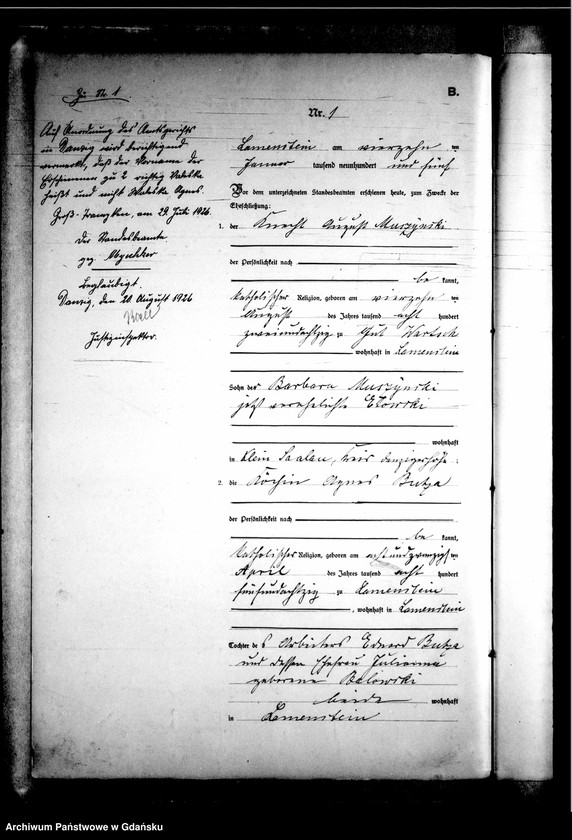 Zu Nr. 1
Auf Anordnung des Amtsgerichts
in Danzig wird berichtigend
vermerkt, daß der Vorname der
Erschienenen zu 2 richtig Valeska
heißt und nicht Agnes.
Groß-Trampken, am 29. Juli 1926.
Der Standesbeamte
gez.
Beglaubigt
Danzig, den 20. August 1926
Justizinspektor.
B.
Nr. 1
Lamenstein am vierzehn ten
Januar tausend neunhundert und fünf
Vor dem unterzeichneten Standesbeamten erschienen heute, zum Zwecke der
Eheschließung:
1. der Knecht August Muszynski
der Persönlichkeit nach
be kannt,
katholischer Religion, geboren am vierzehn ten
August des Jahres tausend acht hundert
zweiundachtzig zu Gut Wartsch
wohnhaft in Lamenstein
Sohn der Barbara Muszynski
jetzt verehelichte
wohnhaft
in Klein Saalau, Kreis Danzigerhöhe.
2. die Köchin Agnes Butza
der Persönlichkeit nach
be kannt,
katholischer Religion, geboren am achtundzwanzigs ten
April des Jahres tausend acht hundert
fünfundachtzig zu Lamenstein
, wohnhaft in Lamenstein
Tochter des Arbeiters Eduard Butza
und dessen Ehefrau Julianna
geborene Belowski
beide wohnhaft
in Lamenstein
Archiwum Państwowe w Gdańsku